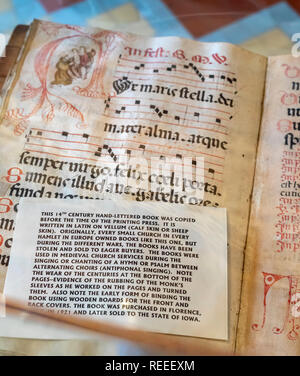 In festis
ve maris stella. dei
mater alma. atque
semper virgo. felix celi porta.
THIS 14TH CENTURY HAND-LETTERED BOOK WAS COPIED
BEFORE THE TIME OF THE PRINTING PRESS. IT IS
WRITTEN IN LATIN ON VELLUM (CALF SKIN OR SHEEP
SKIN). ORIGINALLY, EVERY SMALL CHURCH IN EVERY
HAMLET IN EUROPE OWNED BOOKS LIKE THIS ONE, BUT
DURING THE DIFFERENT WARS, THE BOOKS HAVE BEEN
STOLEN AND SOLD TO EAGER BUYERS. THE BOOKS WERE
USED IN MEDIEVAL CHURCH SERVICES DURING THE
SINGING OR CHANTING OF A HYMN OR PSALM BETWEEN
ALTERNATING CHOIRS (ANTIPHONAL SINGING). NOTE
THE WEAR OF THE CENTURIES AT THE BOTTOM OF THE
PAGES-EVIDENCE OF THE RUBBING OF THE MONK'S
SLEEVES AS HE WORKED ON THE PAGES AND TURNED
THEM. ALSO NOTE THE EARLY FORM OF BINDING THE
BOOK USING WOODEN BOARDS FOR THE FRONT AND
BACK COVERS. THE BOOK WAS PURCHASED IN FLORENCE,
IN 1921 AND LATER SOLD TO THE STATE OF IOWA.
alamy
Image ID: REEEXM
www.alamy.com